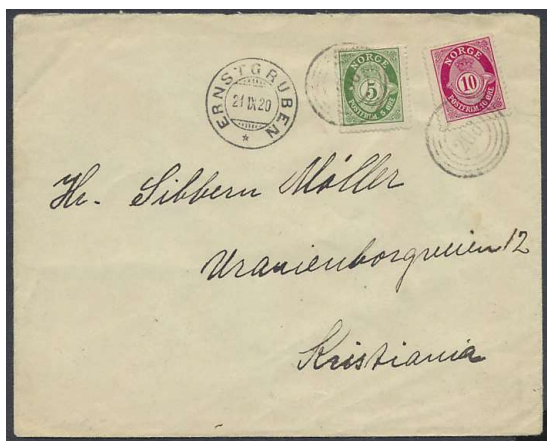 ERNSTGRUBEN
21 IX 20
NORGE
5
POSTFRIM. 5 ØRE
NORGE
10
POSTFRIM. 10 ØRE
Hr. Sibbern Møller
Uranienborgveien 12
Kristiania